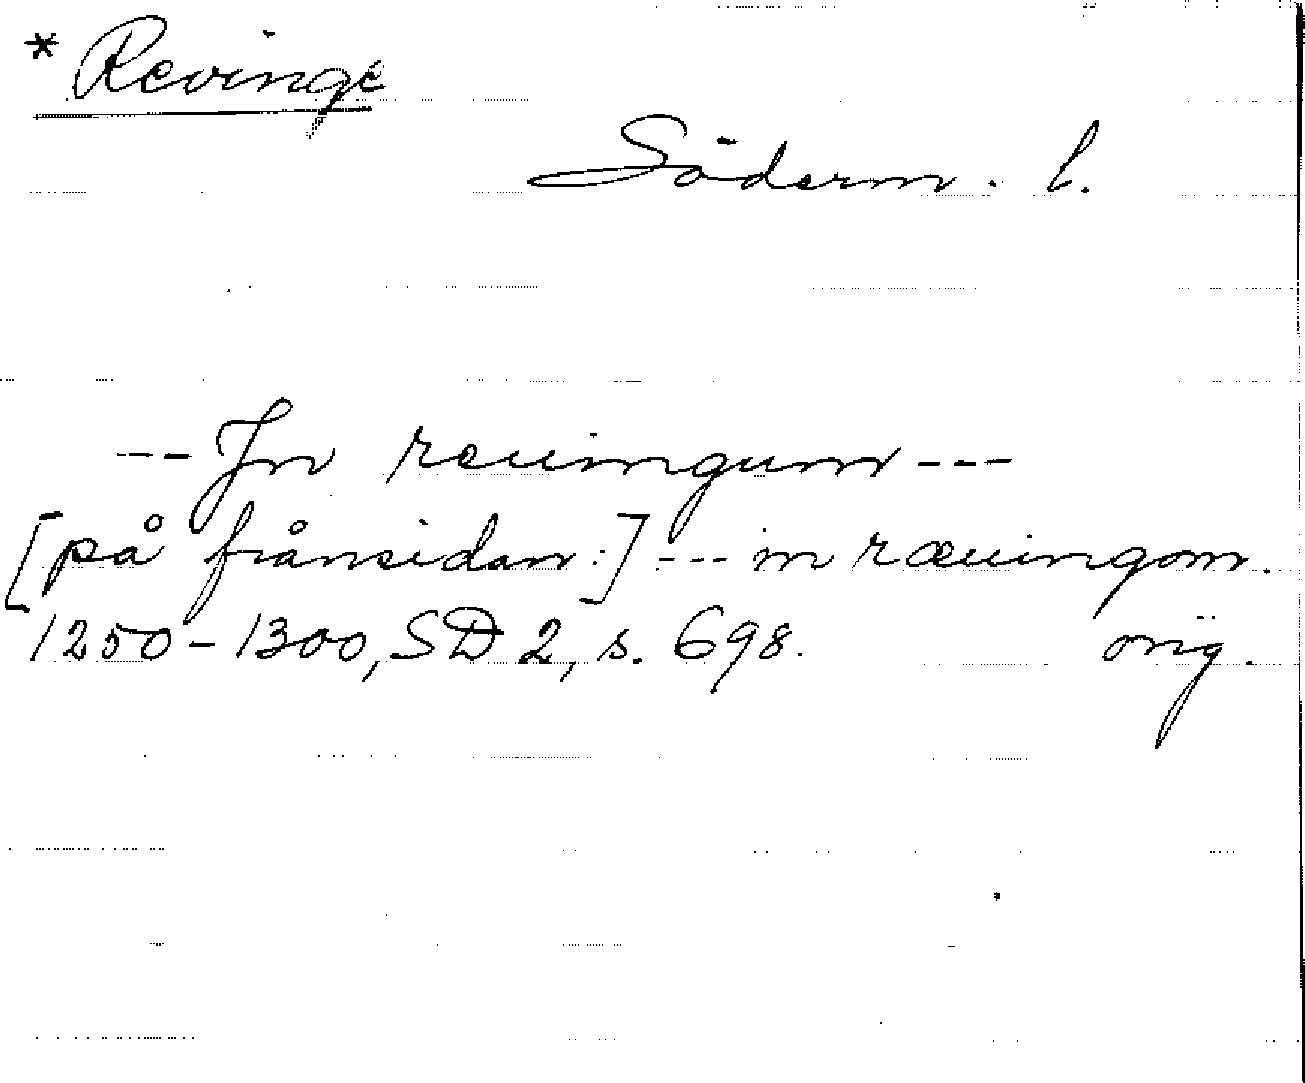 * Revinge
Söderm. l.
-- Jn reuingum ---
[på frånsidan:] --- in ræuingom.
1250-1300, SD 2, s. 698. orig.